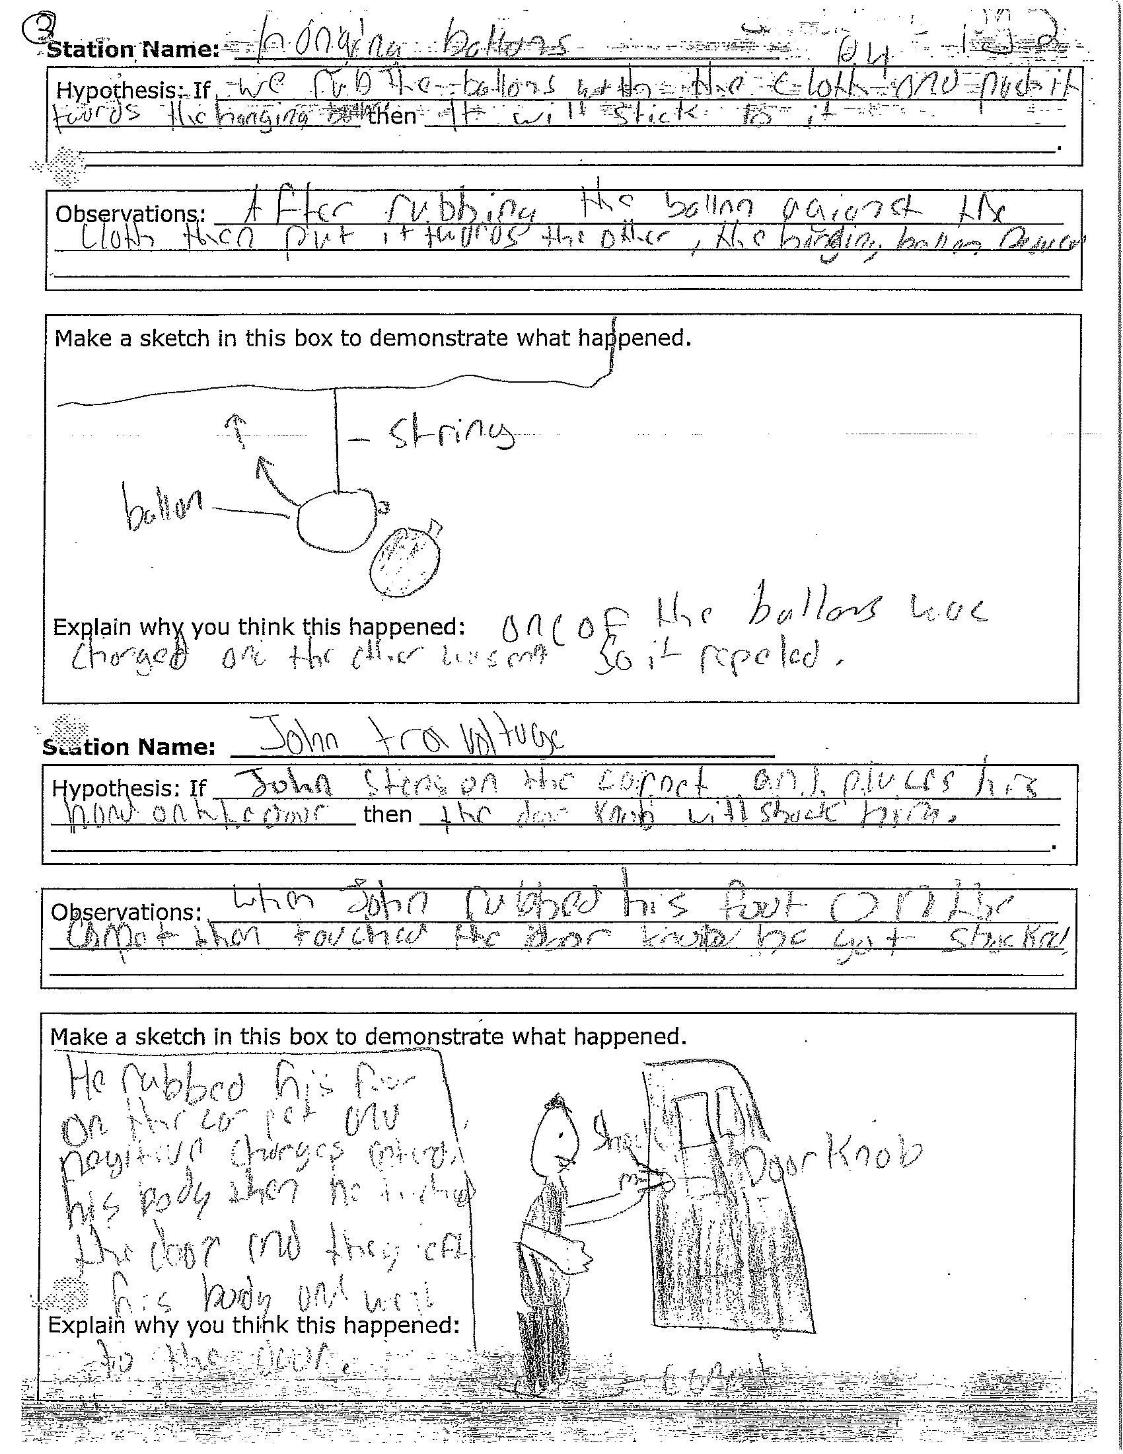 3
Station Name: hanging ballons
Hypothesis: If we rub the ballons with the cloth and push it
twords the hanging then it will stick to it
.
Observations: After rubbing the ballon against the
cloth then put it twords the other, the hanging ballon
Make a sketch in this box to demonstrate what happened.
string
ballon
Explain why you think this happened: one of the ballons was
charged and the other wasnt so it repeled.
Station Name: John travoltuge
Hypothesis: If John steps on the carpet and places his
hand on the door then the door knob will shock him.
.
Observations: when John rubbed his foot on the
carpet then touched the door knob he got shocked
Make a sketch in this box to demonstrate what happened.
He rubbed his
on the carpet and
negitive charges
his body then he
the door and they left
his body and went
Explain why you think this happened:
to the door.
Shock
Door Knob